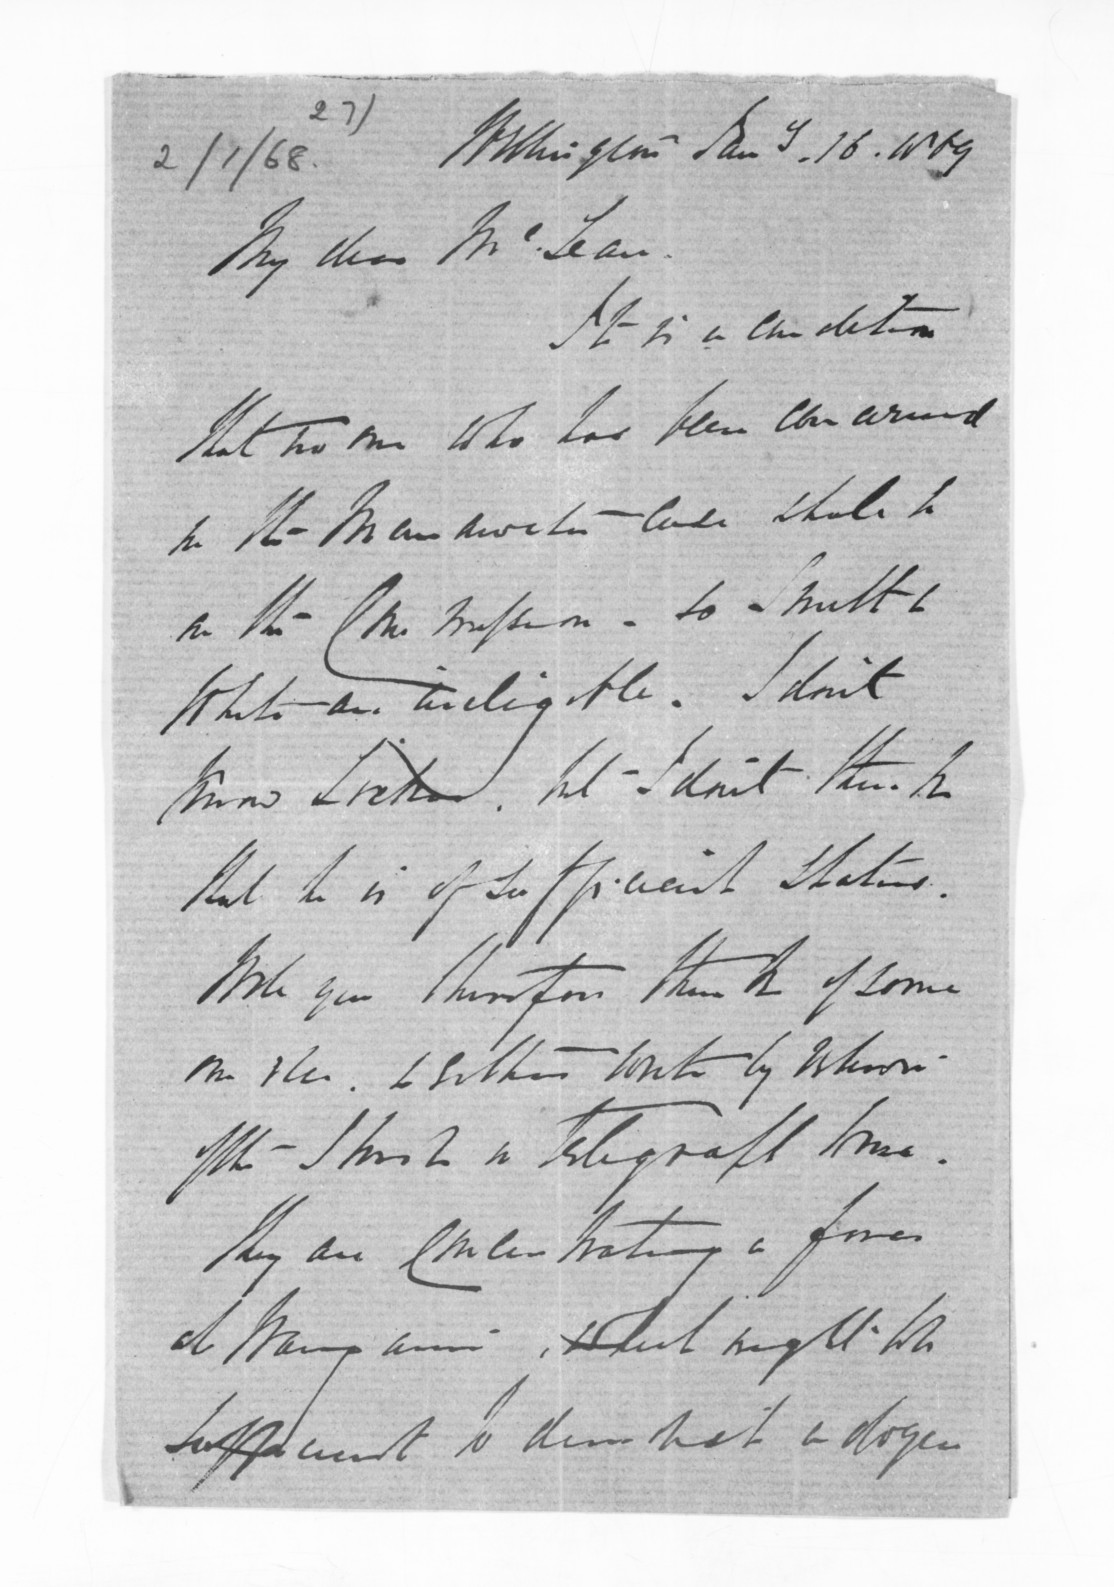 27)
2/1/68.
Wellington Jany. 16. 1869
My dear McLean.
It is a condition
that no one who has been concerned
in the Manawatu case shall be
on the Commission - so Smith &
White are ineligible. I don't
know Locke, but I don't think
that he is of sufficient status.
Will you therefore think of some
one else. & either write by
of the I knock a Telegraft
They are concentrating a force
at Wanganui, that might be
sufficient to demolish a dozen